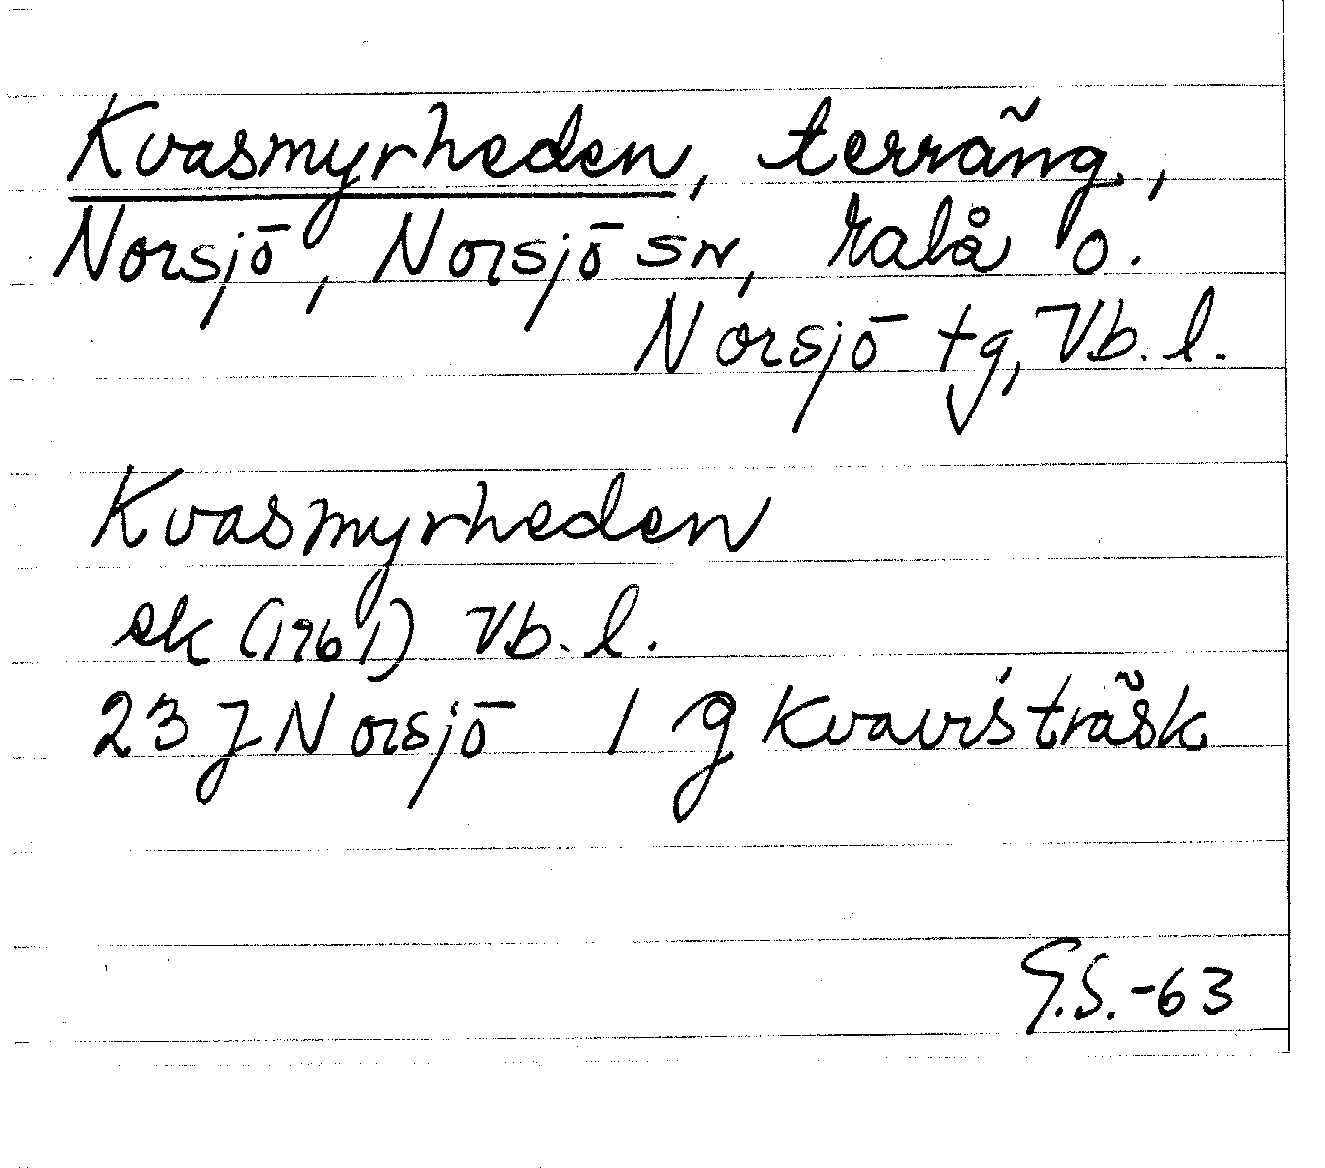 Kvasmyrheden, terräng,
Norsjö, Norsjö sn, Malå o.
Norsjö tg, Vb. l.
Kvasmyrheden
ek (1961) Vb. l.
23 J Norsjö 1 g Kvavisträsk
G.S.-63